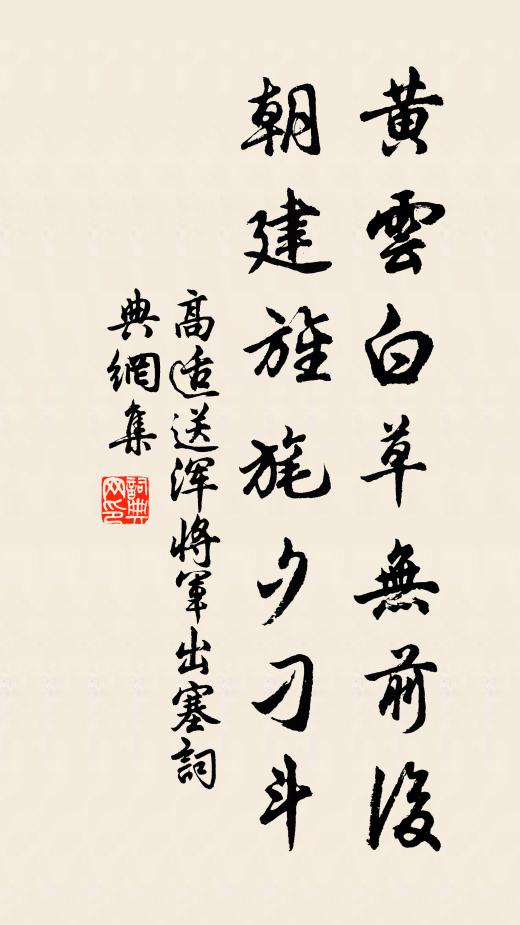 黄雲白草無前後
朝建旌旄夕刁斗
高适送渾將軍出塞詞
典網集
詞典网印